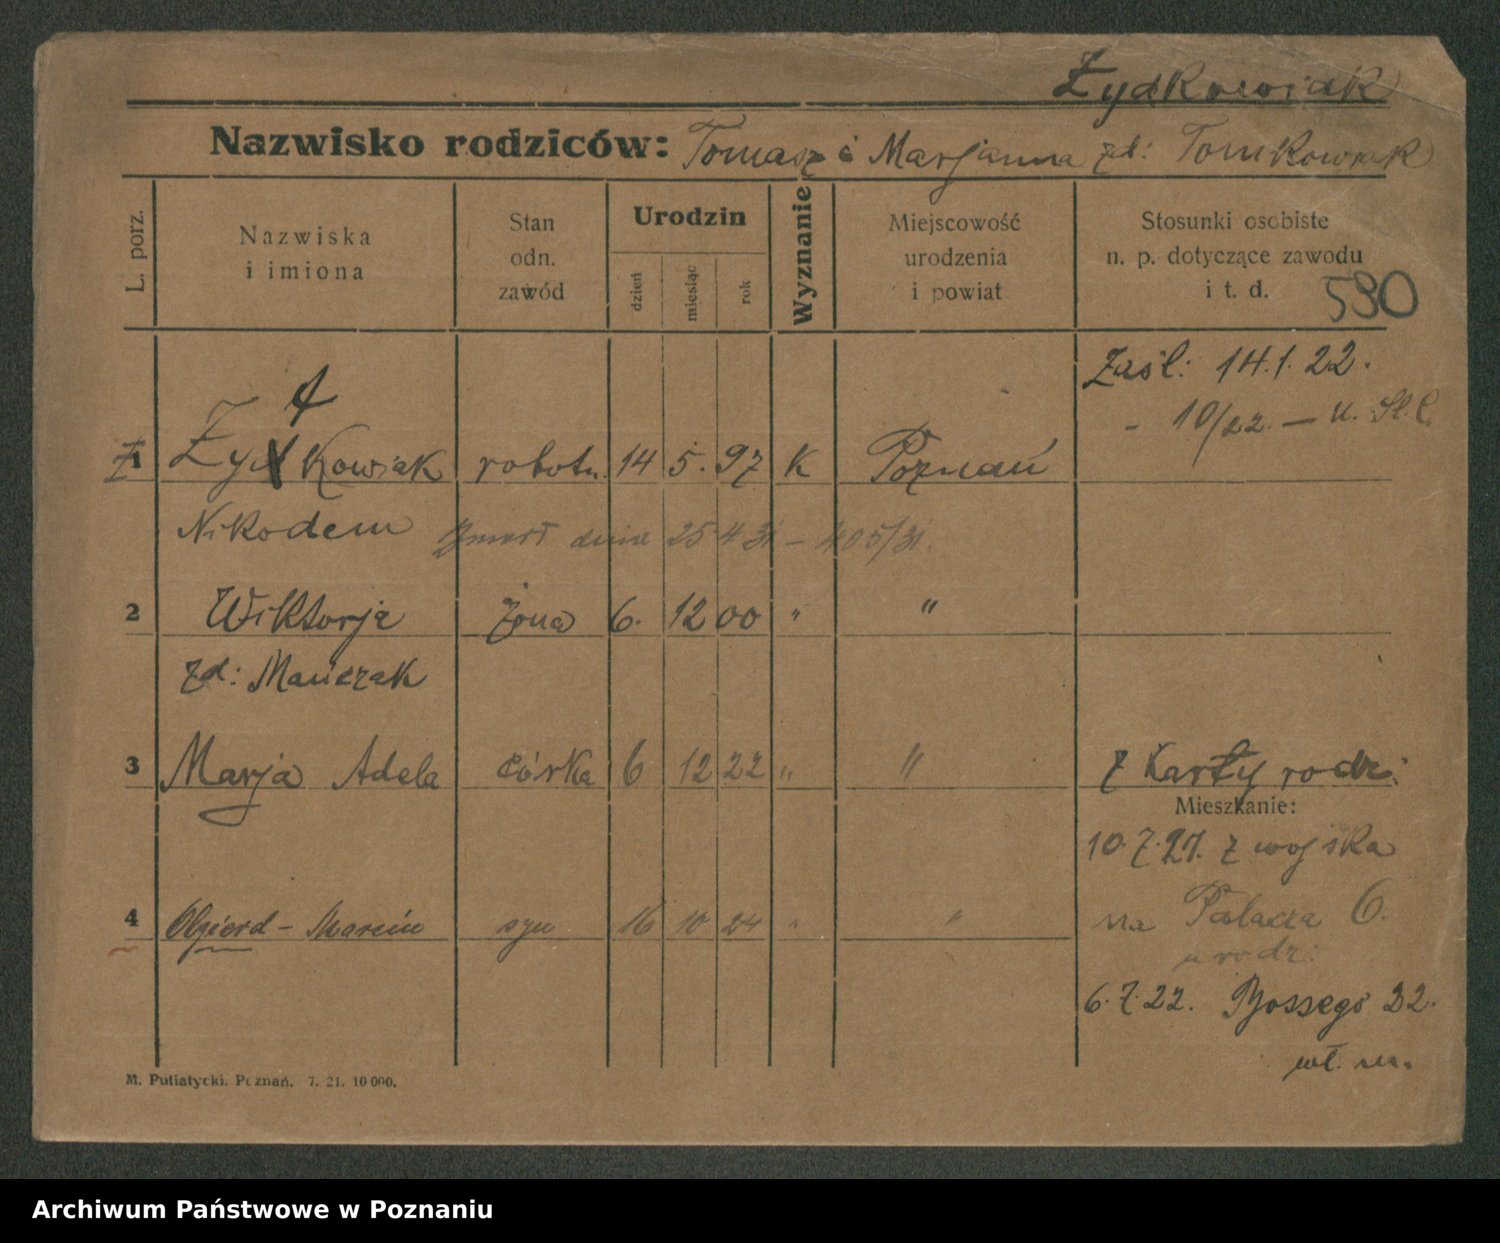 Żydkowiak
Nazwisko rodziców: Tomasz i Marjanna zd: Tomkowiak
L. porz.
Nazwiska
i imiona
Stan
odn.
zawód
Urodzin
dzień
miesiąc
rok
Wyznanie
Miejscowość
urodzenia
i powiat
Stosunki osobiste
n. p. dotyczące zawodu
i t. d.
590
Zaśl: 14.1.22.
- 10/22. - U. St. C.
1 Żydkowiak robotn. 14 5. 97 K Poznań
Nikodem Zmarł dnia 25 4 31 - 405/31.
2 Wiktorja żona 6. 12 00 " "
zd: Mańczak
3 Marja Adela córka 6 12 22 " " z Karty rodz:
Mieszkanie:
10.7.21. z wojska
4 Olgierd - Marcin syn 16 10 24 " " na Palacza 6.
urodz:
6.7.22. Bossego 22.
wł. m.
M. Putiatycki. Poznań. 7. 21. 10 000.
Archiwum Państwowe w Poznaniu